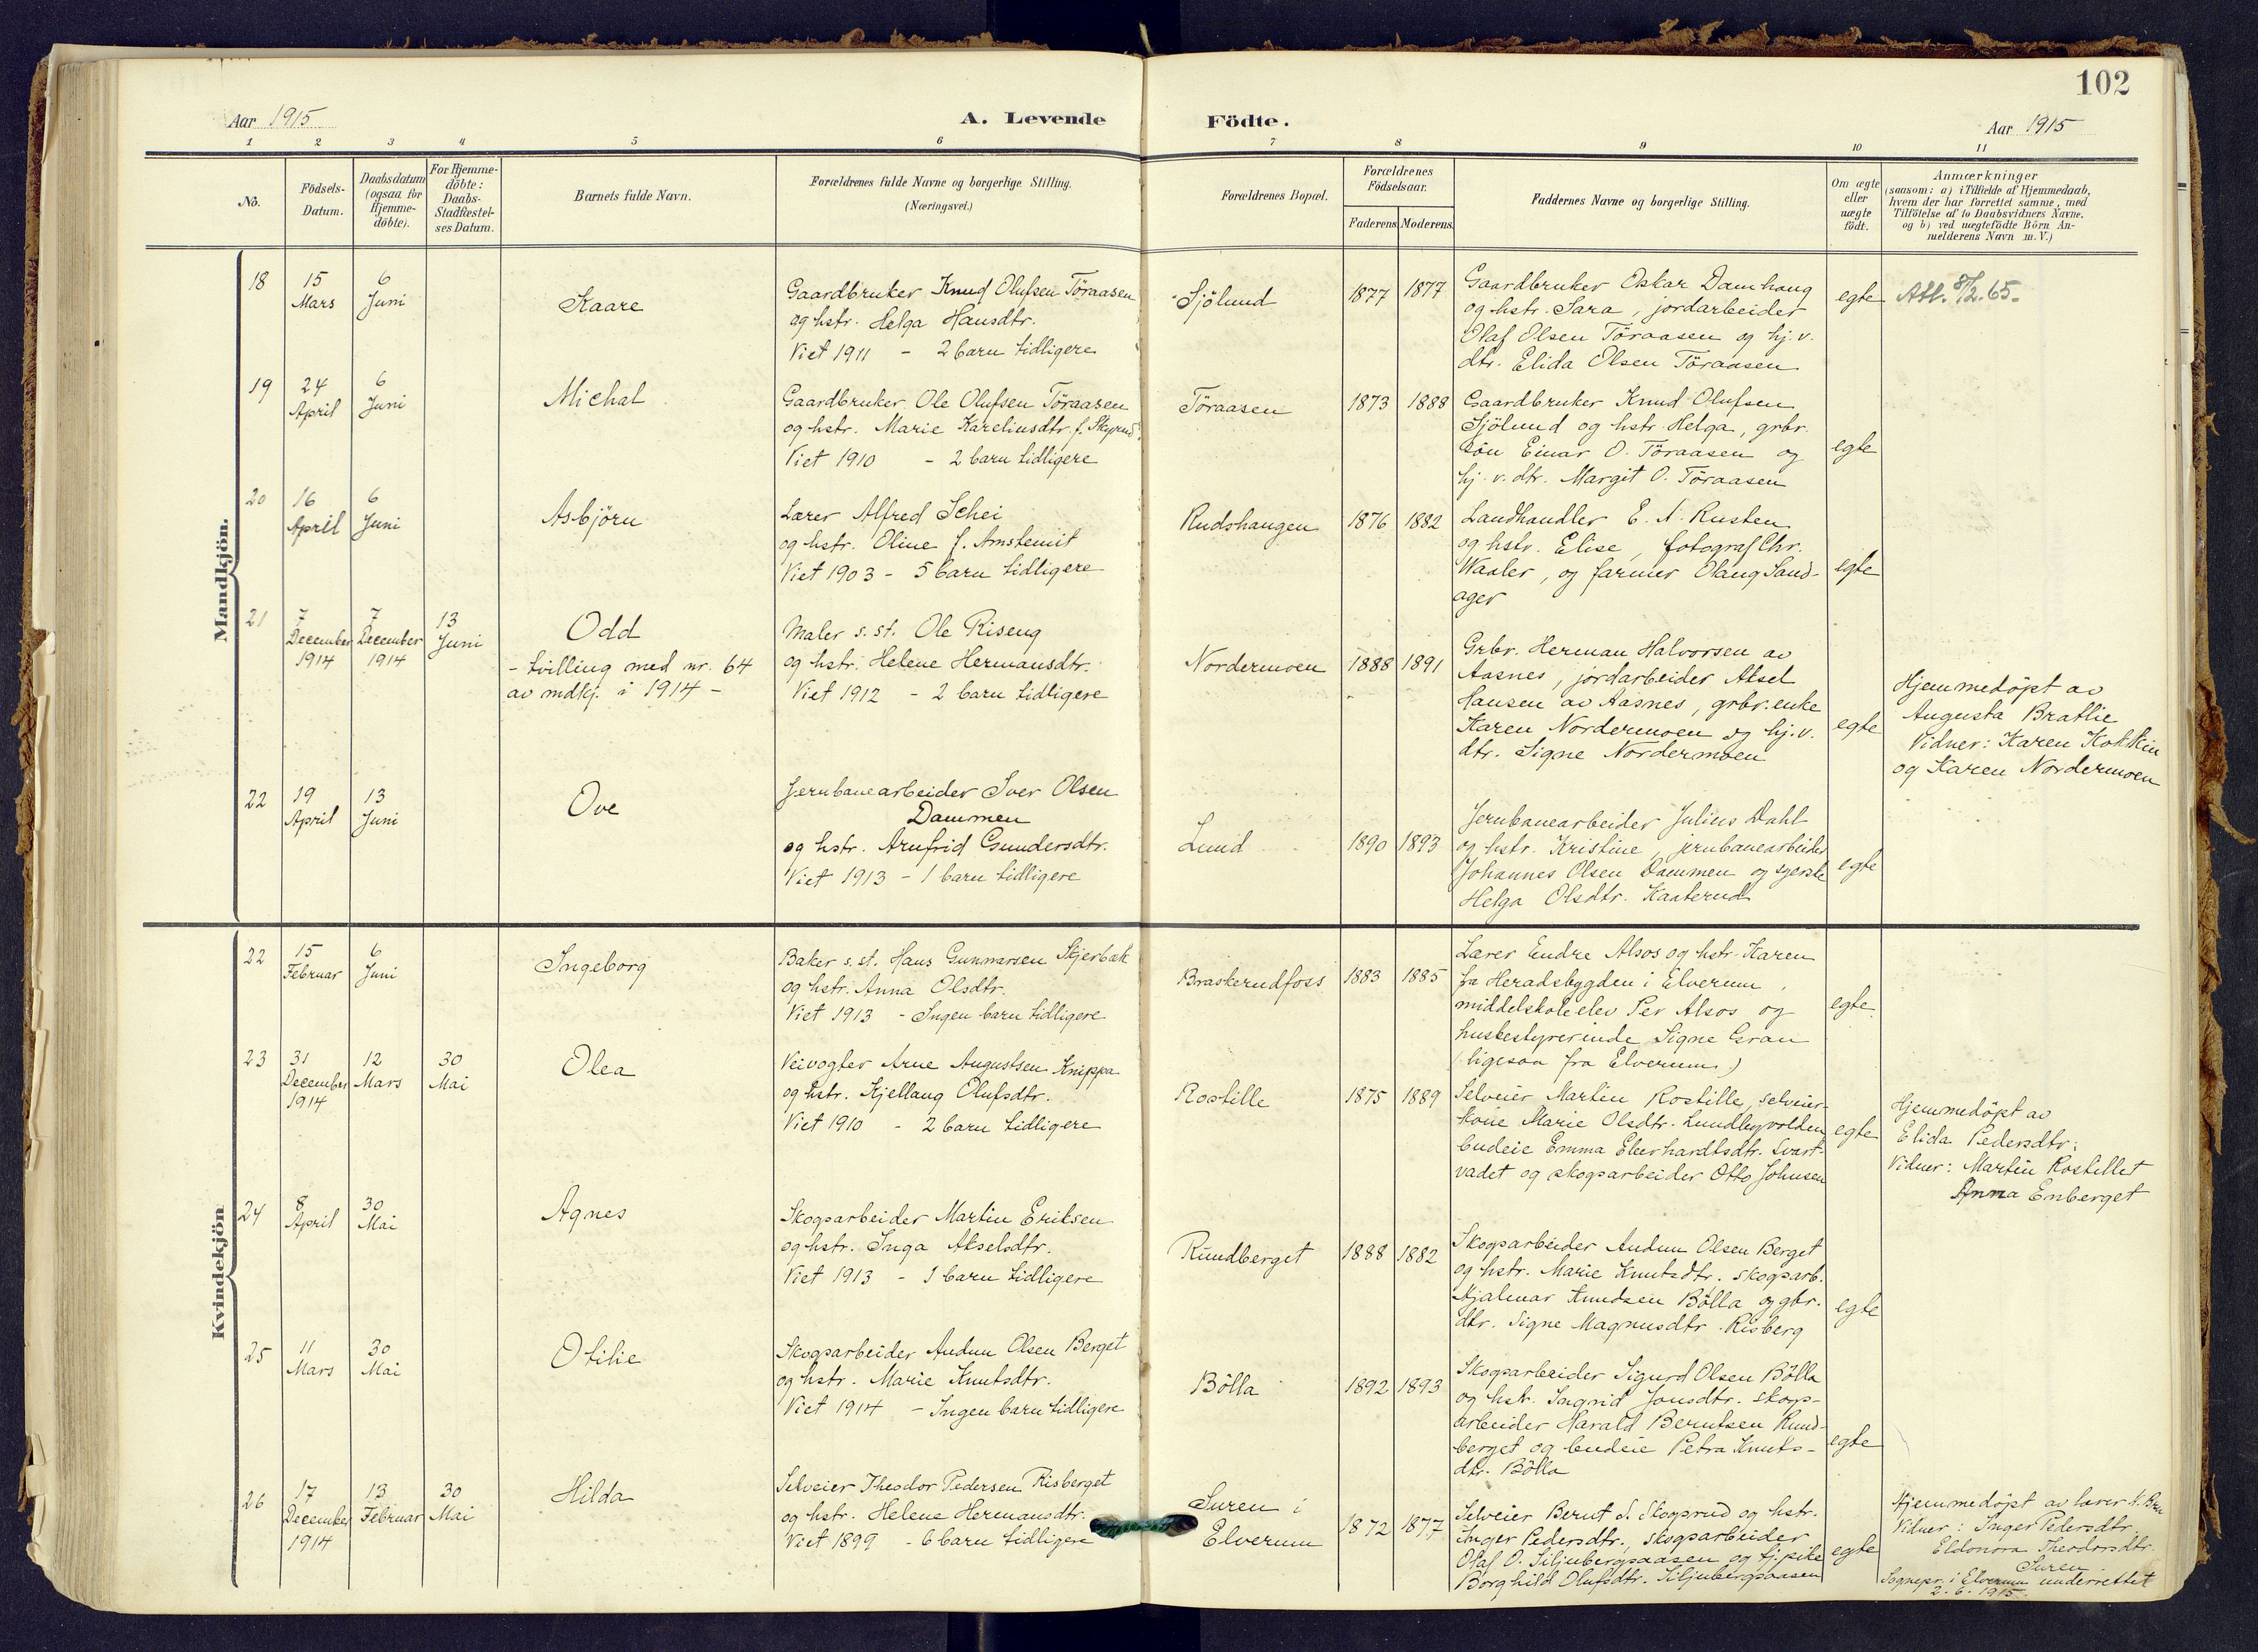 102
Aar 1915
A. Levende Födte.
Aar 1915
1 2 3 4 5 6 7 8 9 10 11
No.
Födsels-
Datum.
Daabsdatum
(ogsaa for
Hjemme-
döbte).
For Hjemme-
döbte:
Daabs-
Stadfæstel-
ses Datum.
Barnets fulde Navn.
Forældrenes fulde Navne og borgerlige Stilling.
(Næringsvei.)
Forældrenes Bopæl.
Forældrenes
Födselsaar.
Faderens. Moderens.
Faddernes Navne og borgerlige Stilling.
Om ægte
eller
uægte
födt.
Anmærkninger
(saasom: a) i Tilfælde af Hjemmedaab,
hvem der har forrettet samme, med
Tilföielse af to Daabsvidners Navne.
og b) ved uægtefödte Börn An-
melderens Navn m. V.)
Mandkjön.
18
15
Mars
6
Juni
Kaare
Gaardbruker Knud Olufsen Töraasen
og hstr. Helga Hansdtr.
Viet 1911 - 2 barn tidligere
Sjölund
1877 1877
Gaardbruker Oskar Damhaug
og hstr. Sara, jordarbeider
Olaf Olsen Töraasen og hj. v.
dtr. Elida Olsen Töraasen
egte
Att. 8/2.65.
19
24
April
6
Juni
Michal
Gaardbruker Ole Olufsen Töraasen
og hstr. Marie Kareliusdtr. f. Skyrud
Viet 1910 - 2 barn tidligere
Töraasen
1873 1888
Gaardbruker Knud Olufsen
Sjölund og hstr. Helga, grbr.
sön Einar O. Töraasen og
hj. v. dtr. Margit O. Töraasen
egte
20
16
April
6
Juni
Asbjörn
Lærer Alfred Schei
og hstr. Oline f. Amstemit
Viet 1903 - 5 barn tidligere
Rudshaugen
1876 1882
Landhandler E. N. Rusten
og hstr. Elise, fotograf Chr.
Waaler, og farmer Olaug Sand-
ager
egte
21
7
December
1914
7
December
1914
13
Juni
Odd
- tvilling med nr. 64
av mdkj. i 1914 -
Maler s. st. Ole Riseng
og hstr. Helene Hermansdtr.
Viet 1912 - 2 barn tidligere
Nordermoen
1888 1891
Grbr. Herman Halvorsen av
Aasnes, jordarbeider Aksel
Hansen av Aasnes, grbr. enke
Karen Nordermoen og hj. v.
dtr. Signe Nordermoen
egte
Hjemmedöpt av
Augusta Bratlie
Vidner: Karen Kokkin
og Karen Nordermoen
22
19
April
13
Juni
Ove
Jernbanearbeider Iver Olsen
Dammen
og hstr. Arnfrid Gundersdtr.
Viet 1913 - 1 barn tidligere
Lund
1890 1893
Jernbanearbeider Julius Dahl
og hstr. Kristine, jernbanearbeider
Johannes Olsen Dammen og syerske
Helga Olsdtr. Kaaterud
egte
Kvindekjön
22
15
Februar
6
Juni
Ingeborg
Baker s. st. Hans Gunnarsen Skjerbak
og hstr. Anna Olsdtr.
Viet 1913 - Ingen barn tidligere
Braskerudfoss
1883 1885
Lærer Endre Alsos og hstr. Karen
fra Heradsbygden i Elverum,
middelskoleelev Per Alsos og
husbestyrerinde Signe Gran
(ligesaa fra Elverum)
egte
23
31
December
1914
12
Mars
30
Mai
Olea
Veivogter Arne Augustsen Knippa
og hstr. Kjellaug Olufsdtr.
Viet 1910 - 2 barn tidligere
Rostille
1875 1889
Selveier Martin Rostille, selveier-
kone Marie Olsdtr. Lundbyvolden
budeie Emma Eberhardtsdtr. Svart-
vadet og skogsarbeider Otto Johnsen
egte
Hjemmedöpt av
Elida Pedersdtr.
Vidner: Martin Rostillet
Anna Enberget
24
8
April
30
Mai
Agnes
Skogsarbeider Martin Eriksen
og hstr. Inga Akselsdtr.
Viet 1913 - 1 barn tidligere
Rundberget
1888 1882
Skogsarbeider Audun Olsen Berget
og hstr. Marie Knutsdtr. skogsarb.
Hjalmar Knudsen Bölla og gbr.
dtr. Signe Magnusdtr. Risberg
egte
25
11
Mars
30
Mai
Otilie
Skogsarbeider Audun Olsen Berget
og hstr. Marie Knutsdtr.
Viet 1914 - Ingen barn tidligere
Bölla
1892 1893
Skogsarbeider Sigurd Olsen Bölla
og hstr. Ingrid Jonsdtr. skogs-
arbeider Harald Berntsen Rund-
berget og budeie Petra Knuts-
dtr. Bölla
egte
26
17
December
1914
13
Februar
30
Mai
Hilda
Selveier Theodor Pedersen Risberget
og hstr. Helene Hermansdtr.
Viet 1899 - 6 barn tidligere
Suren i
Elverum
1872 1877
Selveier Bernt S. Skogsrud og hstr.
Inger Pedersdtr., skogsarbeider
Olaf O. Siljubergsaasen og tj. pike
Borghild Olufsdtr. Siljubergsaasen
egte
Hjemmedöpt av lærer N. Bru
Vidner: Inger Pedersdtr.
Eldonora Theodorsdtr.
Suren.
Sognepr. i Elverum underrettet
2. 6. 1915.